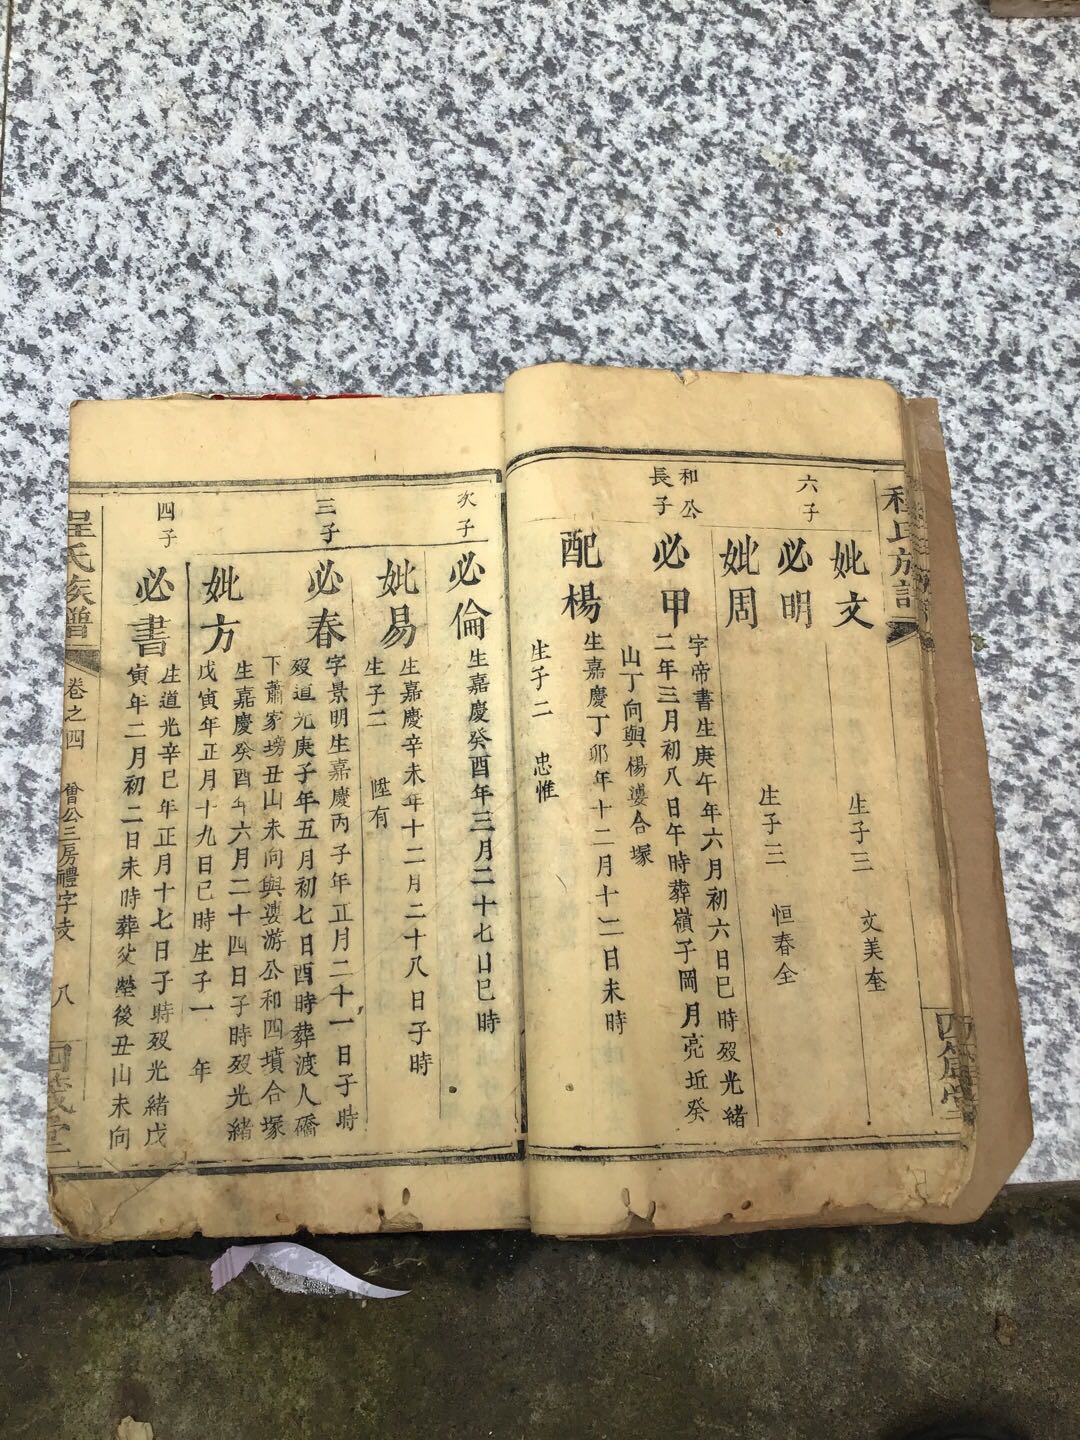 程氏族譜
妣文
生子三 文美奎
六子
必明
妣周
生子三 恒春全
和公
長子
必甲
字帝書生庚午年六月初六日巳時歿光緒
二年三月初八日午時葬嶺子岡月亮坵癸
山丁向與楊婆合塚
配楊
生嘉慶丁卯年十二月十二日未時
生子二 忠惟
次子
必倫
生嘉慶癸酉年三月二十七日巳時
妣易
生嘉慶辛未年十二月二十八日子時
生子二 陞有
三子
必春
字景明生嘉慶丙子年正月二十一日子時
歿道光庚子年五月初七日酉時葬渡人橋
下蕭家塝丑山未向與婆游公和四墳合塚
妣方
生嘉慶癸酉年六月二十四日子時歿光緒
戊寅年正月十九日巳時生子一 年
四子
必書
生道光辛巳年正月十七日子時歿光緒戊
寅年二月初二日未時葬父塋後丑山未向
程氏族譜
卷之四
曾公三房禮字支
八